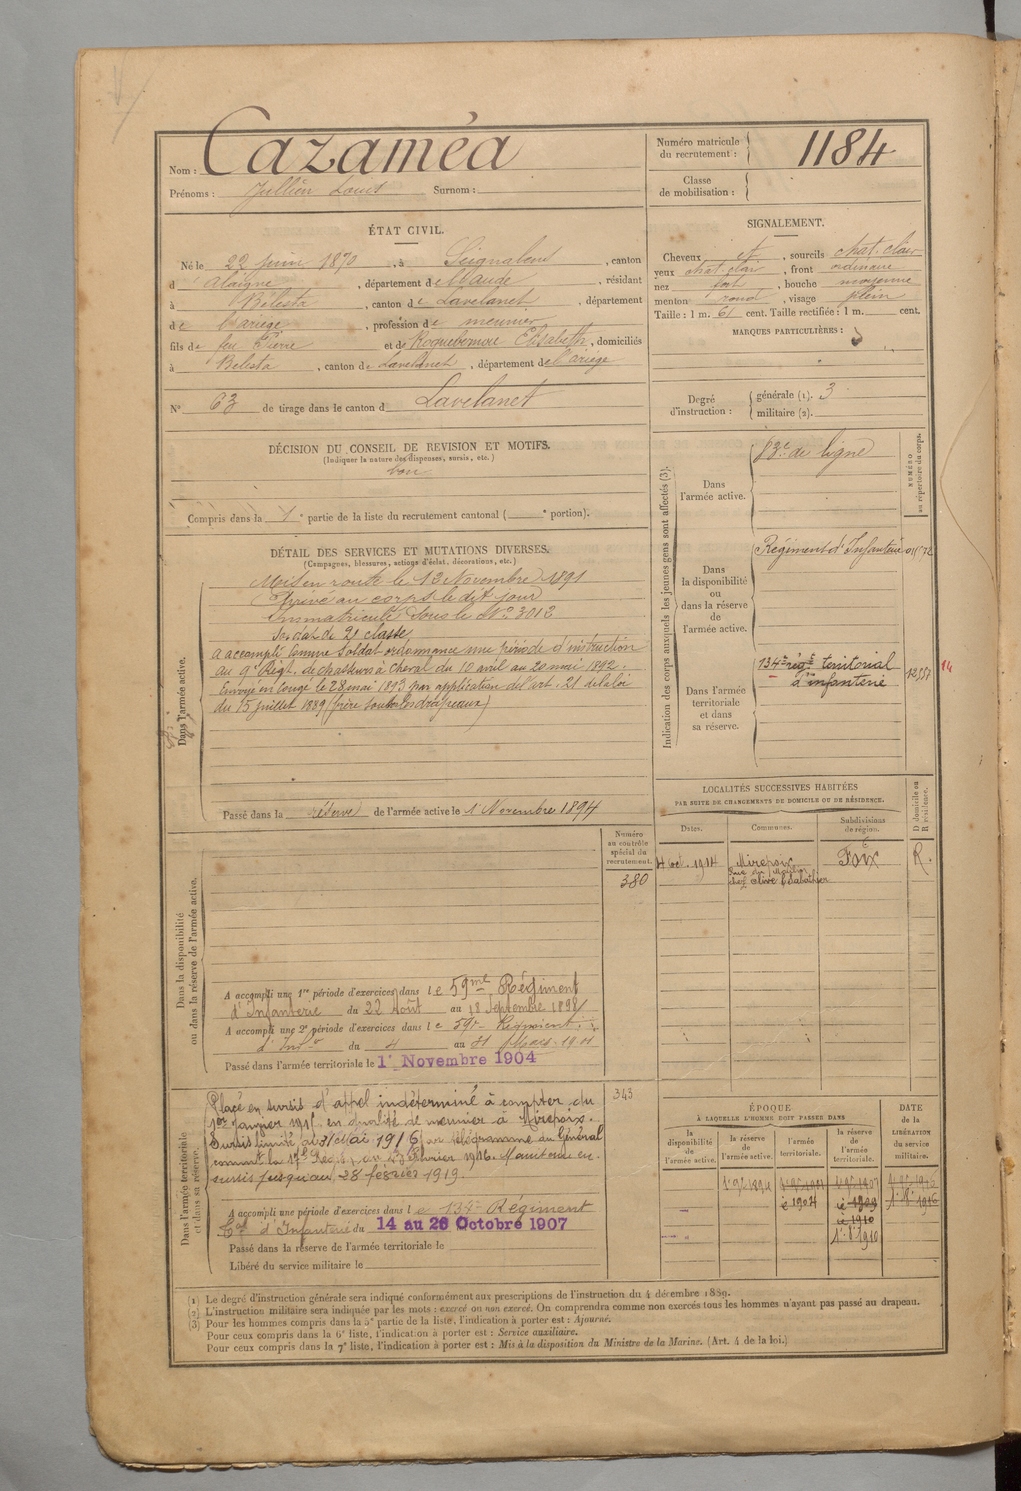 Nom : Cazaméa
Prénoms : Jullien Louis Surnom :
Numéro matricule du recrutement : 1184
Classe de mobilisation :
ÉTAT CIVIL.
Né le 22 juin 1870, à Seignalens, canton
d'Alaigne, département de l'Aude, résidant
à Bélesta, canton de Lavelanet, département
de l'ariège, profession de meunier
fils de feu Pierre et de Roquebernou Elisabeth, domiciliés
à Belesta, canton de Lavelanet, département de l'ariège
N° 63 de tirage dans le canton d Lavelanet
SIGNALEMENT.
Cheveux et, sourcils chat. clair
yeux chat. clair, front ordinaire
nez fort, bouche moyenne
menton rond, visage plein
Taille : 1 m. 61 cent. Taille rectifiée : 1 m. cent.
MARQUES PARTICULIÈRES :
Degré d'instruction : générale (1). 3
militaire (2).
DÉCISION DU CONSEIL DE REVISION ET MOTIFS.
(Indiquer la nature des dispenses, sursis, etc.)
bon
Compris dans la 1e partie de la liste du recrutement cantonal ( e portion).
Indication des corps auxquels les jeunes gens sont affectés (3).
NUMÉRO au répertoire du corps.
Dans l'armée active. de ligne
Dans la disponibilité ou dans la réserve de l'armée active. Régiment d'Infanterie
Dans l'armée territoriale et dans sa réserve. 134e régt territorial d'infanterie
14
DÉTAIL DES SERVICES ET MUTATIONS DIVERSES.
(Campagnes, blessures, actions d'éclat, décorations, etc.)
Dans l'armée active.
Mis en route le 13 Novembre 1891
Arrivé au corps le dit jour
Immatriculé sous le N° 3012
Soldat de 2e classe
a accompli comme Soldat ordonnance une période d'instruction
au 9e Régt. de chasseurs à cheval du 10 avril au 20 mai 1892.
Envoyé en congé le 28 mai 1893 par application de l'art. 21 de la loi
du 15 juillet 1889 (frère sous les drapeaux)
Passé dans la réserve de l'armée active le 1 Novembre 1894
LOCALITÉS SUCCESSIVES HABITÉES
PAR SUITE DE CHANGEMENTS DE DOMICILE OU DE RÉSIDENCE.
Dates. Communes. Subdivisions de région. D domicile ou R résidence.
4 oct. 1914 Mirepoix Foix R.
Numéro au contrôle spécial du recrutement.
380
Dans la disponibilité ou dans la réserve de l'armée active.
A accompli une 1re période d'exercices dans le 59me Régiment
d'Infanterie du 22 Août au 18 Septembre 1898
A accompli une 2e période d'exercices dans le 59e Régiment
d'Inf du 4 au 31 Mars 1901
Passé dans l'armée territoriale le 1er Novembre 1904
343
Dans l'armée territoriale et dans sa réserve.
Placé en sursis d'appel indéterminé à compter du
1er Janvier 1915 en qualité de meunier à Mirepoix.
Sursis limité au 31 Mai 1916 par télégramme du Général
commt la 17e Région au 23 Février 1916. Maintenu en
sursis jusqu'au 28 février 1919.
A accompli une période d'exercices dans le 134e Régiment
Tal d'Infanterie du 14 au 26 Octobre 1907
Passé dans la réserve de l'armée territoriale le
Libéré du service militaire le
ÉPOQUE
À LAQUELLE L'HOMME DOIT PASSER DANS
DATE de la LIBÉRATION du service militaire.
la disponibilité de l'armée active.
la réserve de l'armée active.
l'armée territoriale.
la réserve de l'armée territoriale.
1904
1909
1910
(1) Le degré d'instruction générale sera indiqué conformément aux prescriptions de l'instruction du 4 décembre 1889.
(2) L'instruction militaire sera indiquée par les mots : exercé ou non exercé. On comprendra comme non exercés tous les hommes n'ayant pas passé au drapeau.
(3) Pour les hommes compris dans la 5e partie de la liste, l'indication à porter est : Ajourné.
Pour ceux compris dans la 6e liste, l'indication à porter est : Service auxiliaire.
Pour ceux compris dans la 7e liste, l'indication à porter est : Mis à la disposition du Ministre de la Marine. (Art. 4 de la loi.)